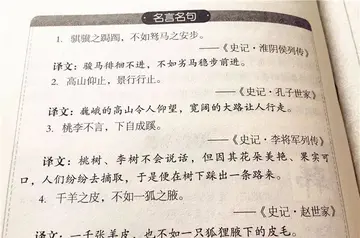 名言名句
1. 骐骥之跼躅,不如驽马之安步。
——《史记·淮阴侯列传》
译文:骏马徘徊不进,不如劣马稳步前进。
2. 高山仰止,景行行止。
——《史记·孔子世家》
译文:巍峨的高山令人仰望,宽阔的大路让人行走。
3. 桃李不言,下自成蹊。
——《史记·李将军列传》
译文:桃树、李树不会说话,但因其花朵美艳、果实可
口,人们纷纷去摘取,于是便在树下踩出一条路来。
4. 千羊之皮,不如一狐之腋。
——《史记·赵世家》
译文:一千张羊皮,也不如一只狐狸腋下的皮毛。